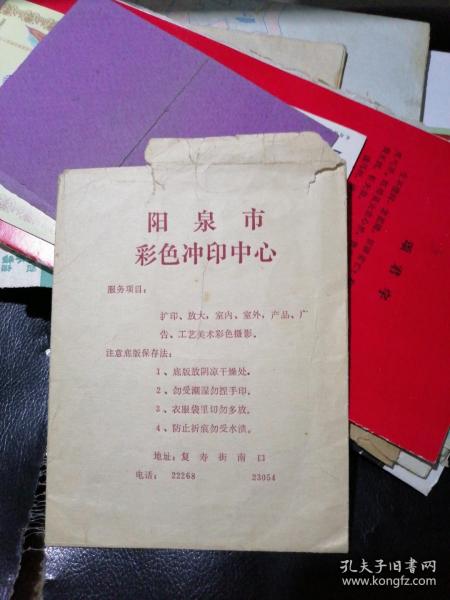 阳泉市
彩色冲印中心
服务项目：
扩印、放大，室内、室外，产品、广
告、工艺美术彩色摄影。
注意底版保存法：
1、底版放阴凉干燥处。
2、勿受潮湿勿捏手印。
3、衣服袋里切勿多放。
4、防止折痕勿受水渍。
地址：复寿街南口
电话：22268 23054
孔夫子旧书网
www.kongfz.com